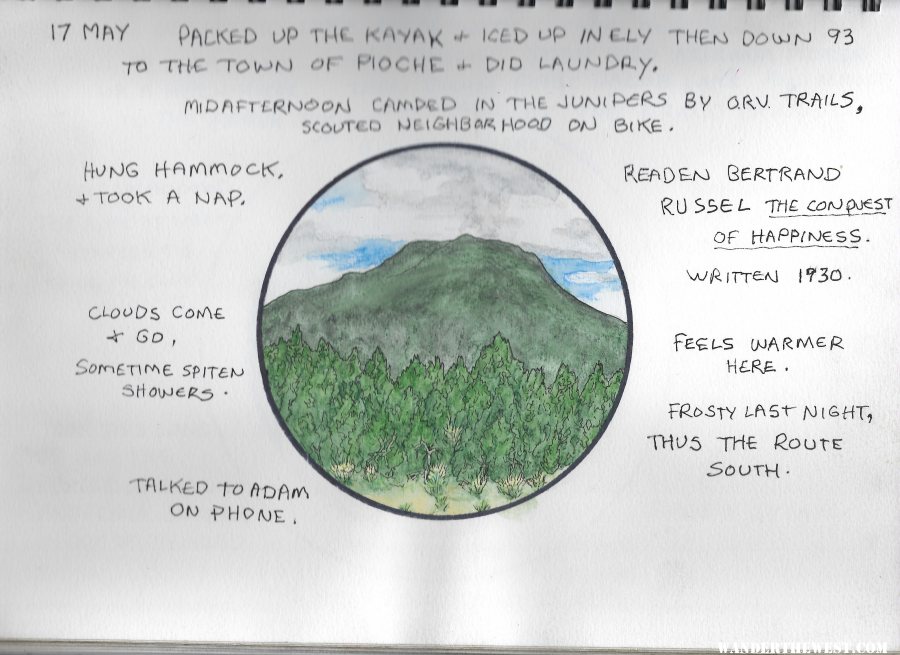 17 MAY PACKED UP THE KAYAK + ICED UP IN ELY THEN DOWN 93
TO THE TOWN OF PIOCHE + DID LAUNDRY.
MIDAFTERNOON CAMPED IN THE JUNIPERS BY O.R.V. TRAILS,
SCOUTED NEIGHBORHOOD ON BIKE.
HUNG HAMMOCK,
+ TOOK A NAP.
CLOUDS COME
+ GO,
SOMETIME SPITEN
SHOWERS.
TALKED TO ADAM
ON PHONE.
READEN BERTRAND
RUSSEL THE CONQUEST
OF HAPPINESS.
WRITTEN 1930.
FEELS WARMER
HERE.
FROSTY LAST NIGHT,
THUS THE ROUTE
SOUTH.
WANDERTHEWEST.COM